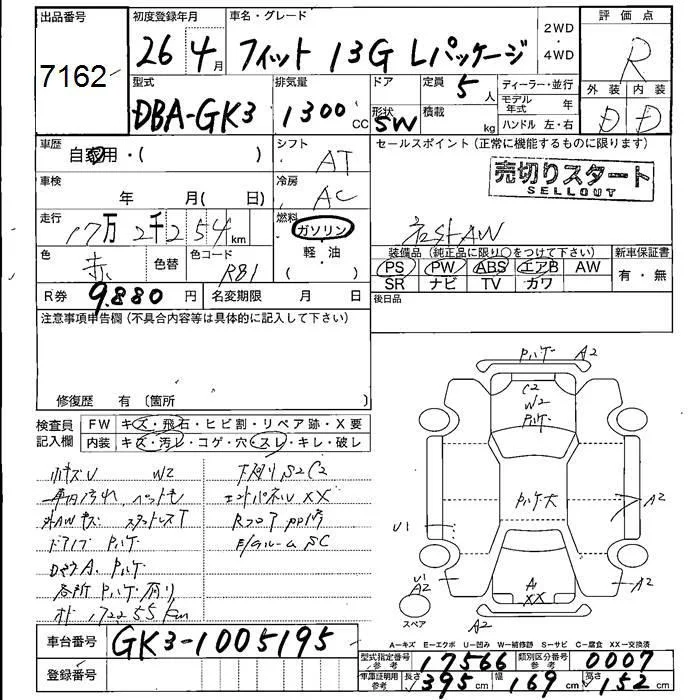 出品番号
7162
初度登録年月
26 4月
車名・グレード
フィット 13G Lパッケージ
2WD
4WD
評価点
R
外装 内装
D D
型式
DBA-GK3
排気量
1300cc
ドア
形状
SW
定員
5人
積載
kg
ディーラー・並行
モデル年式 年
ハンドル 左・右
車歴
自家用・( )
シフト
AT
セールスポイント(正常に機能するものに限ります)
売切りスタート
SELLOUT
社外AW
車検
年 月( 日)
冷房
AC
走行
17万2千254km
燃料
ガソリン
軽・油
( )
色
赤
色替
色コード
R81
装備品(純正品に限り○をつけて下さい)
PS PW ABS エアB AW
SR ナビ TV カワ
新車保証書
有・無
後日品
R券 9,880円
名変期限 月 日
注意事項申告欄(不具合内容等は具体的に記入して下さい)
修復歴 有〔箇所 〕
検査員記入欄
FW キズ・飛石・ヒビ割・リペア跡・X要
内装 キズ・汚レ・コゲ・穴・スレ・キレ・破レ
小キズU W2
下廻りS2C2
エンドパネルXX
外AWキズ スタッドレスT
ドアノブ
各所
車台番号
GK3-1005195
登録番号
A2
C2
W2
A2
U1
U1
A2
A2
A
XX
A2
スペア
A-キズ E-エクボ U-凹み W-補修跡 S-サビ C-腐食 XX-交換済
型式指定番号参考
17566
類別区分番号参考
0007
車庫証明用参考
長さ 395cm
幅 169cm
高さ 152cm